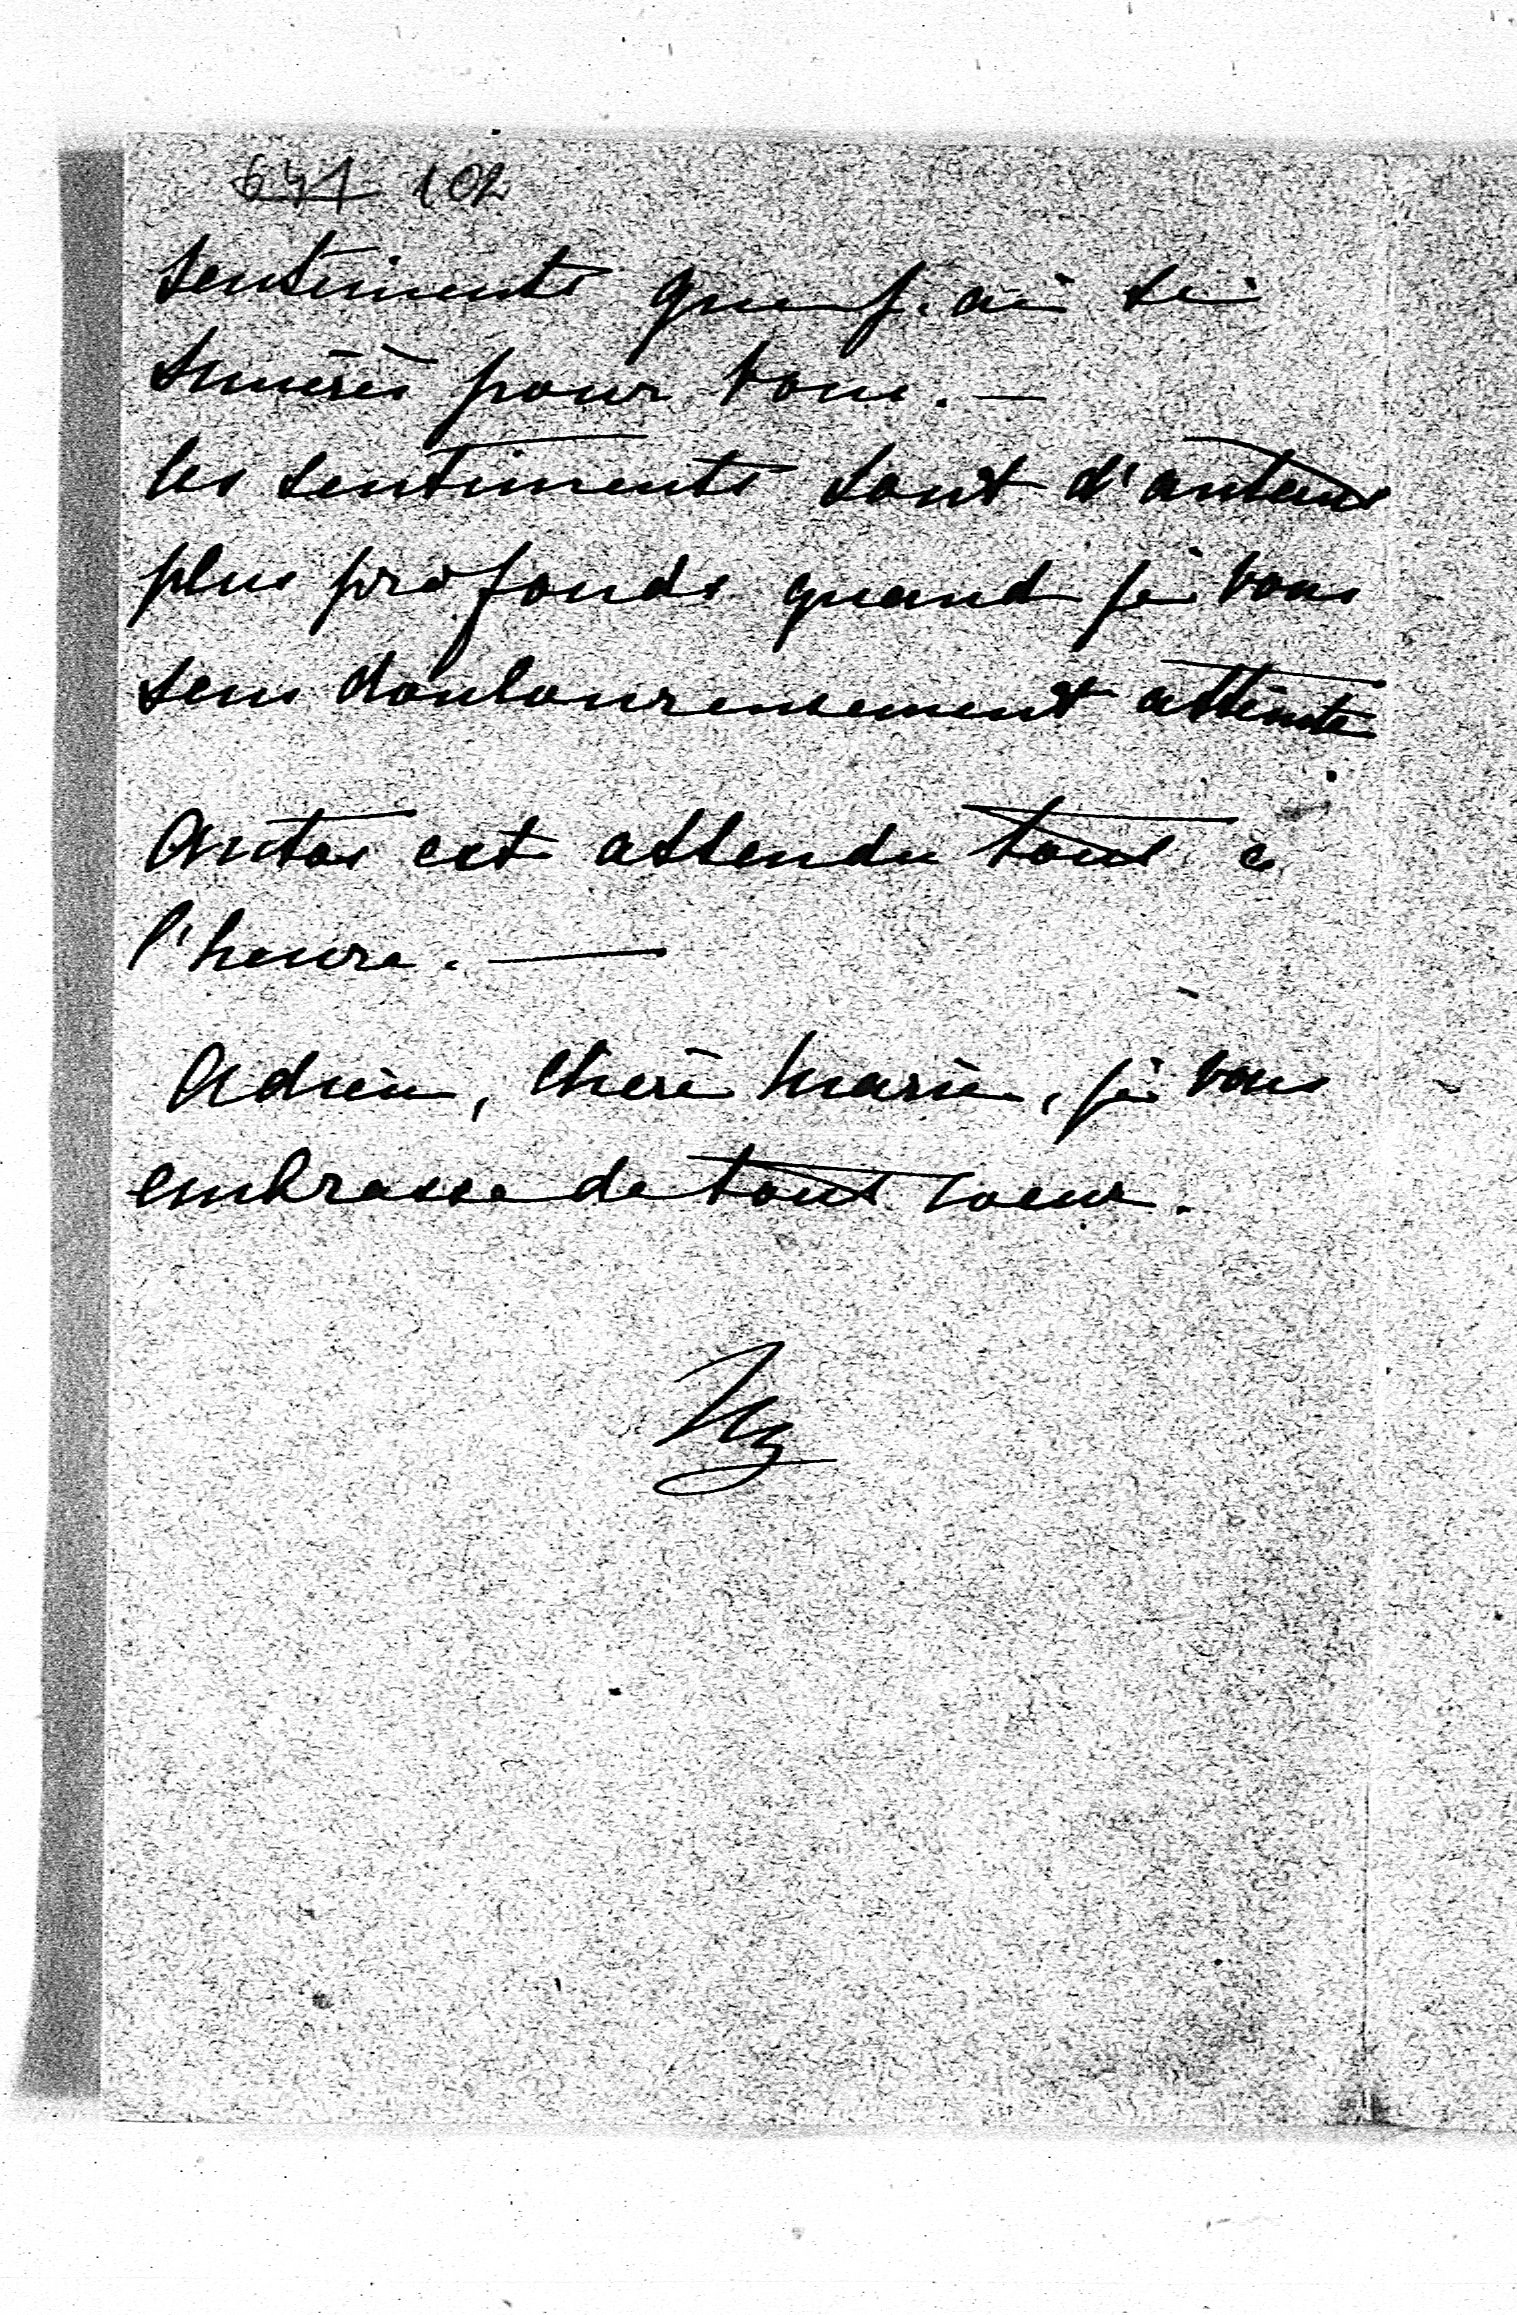 641 102
sentiments que j'ai si
sincères pour vous. —
Ces sentiments sont d'autant
plus profonds quand je vous
sens douloureusement atteinte.
est attendu tout à
l'heure. —
Adieu, chère Marie, je vous
embrasse de tout coeur.